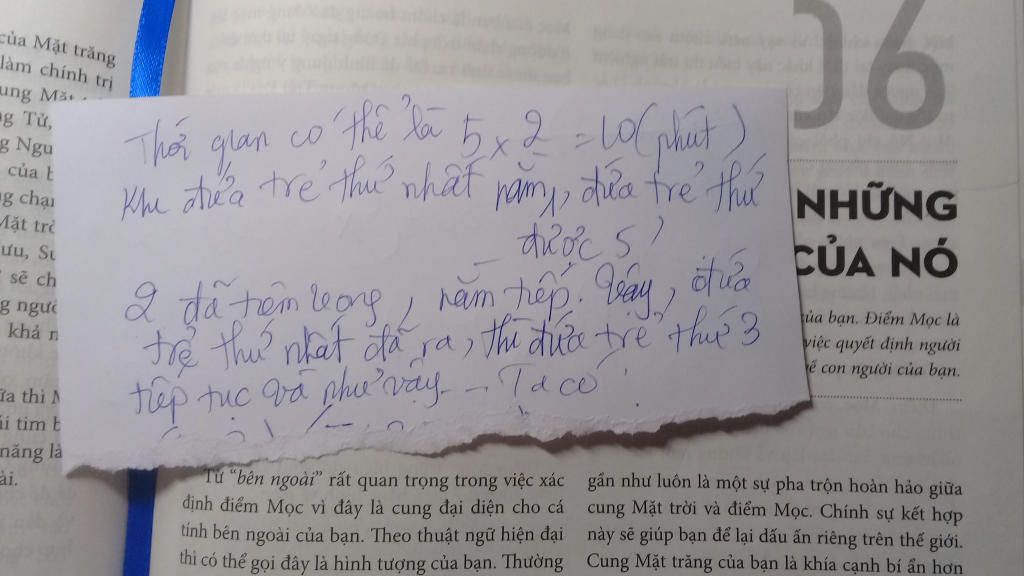 của Mặt trăng
làm chính trị
ung Mặt
g Tử,
g Ngu
của b
g chạ
Mặt trờ
ưu, Sư
sẽ ch
ng ngườ
khả n
ữa thì M
úi tim b
năng là
ài.
06
NHỮNG
CỦA NÓ
của bạn. Điểm Mọc là
việc quyết định người
con người của bạn.
Thời gian có thể là 5 x 2 = 10 (phút)
Khi đứa trẻ thứ nhất nằm, đứa trẻ thứ
được 5'
2 đã tiêm xong, nằm tiếp. Vậy, đứa
trẻ thứ nhất đã ra, thì đứa trẻ thứ 3
tiếp tục và như vậy... Ta có:
Từ “bên ngoài” rất quan trọng trong việc xác
định điểm Mọc vì đây là cung đại diện cho cá
tính bên ngoài của bạn. Theo thuật ngữ hiện đại
thì có thể gọi đây là hình tượng của bạn. Thường
gần như luôn là một sự pha trộn hoàn hảo giữa
cung Mặt trời và điểm Mọc. Chính sự kết hợp
này sẽ giúp bạn để lại dấu ấn riêng trên thế giới.
Cung Mặt trăng của bạn là khía cạnh bí ẩn hơn